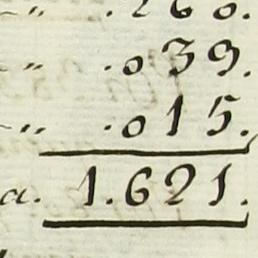 -„ .260.
-„ .039.
-„ .015.
a. 1.621.